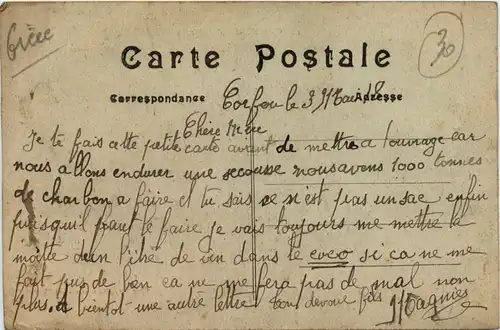 Grèce
30
Carte Postale
Correspondance
Adresse
Corfou le 3 Mai 18
Chère Mère
Je te fais cette petite carte avant de mettre a l'ouvrage car
nous allons endurer une secousse nous avons 1000 tonnes
de charbon a faire et tu sais ce n'est pas un sac enfin
puisqu'il faut le faire je vais toujours me mettre la
moitié d'un litre de vin dans le coco si ca ne me
fait pas de bien ca ne me fera pas de mal non
plus, a bientôt une autre lettre Ton devoué fils